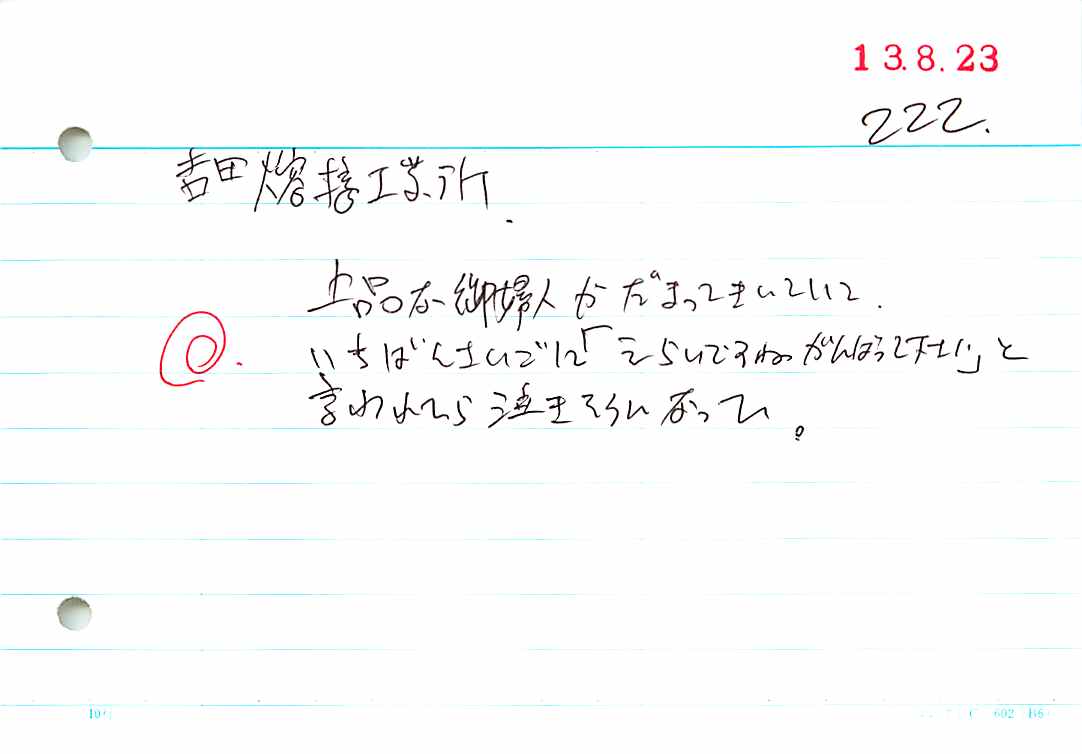 13.8.23
222.
吉田熔接工業所.
上品な御婦人がだまってきいていて.
いちばんさいごに「えらいですねがんばって下さい」と
言われたら泣きそうになった。
602 B6